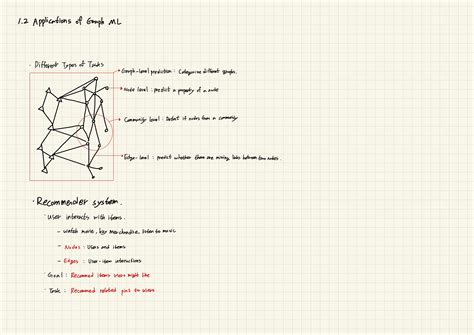 1.2 Applications of Graph ML
· Different Types of Tasks
Graph-level prediction : Categorize different graphs.
Node level : predict a property of a node
Community level : Detect if nodes form a community
Edge-level : predict whether there are missing links between two nodes.
· Recommender system.
· User interacts with items.
- watch movie, buy merchandise, listen to music
- Nodes : Users and items
- Edges : User-item interactions
· Goal : Recommend items users might like
· Task : Recommend related pins to users